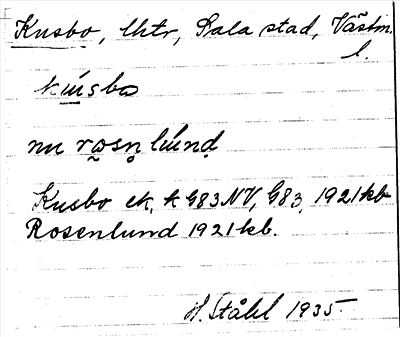 Kusbo, lhtr, Sala stad, Västm. l.
kúsbo
nu rosnlúnd
Kusbo ek. k. G83 NV, G83, 1921 kb
Rosenlund 1921 kb.
H. Ståhl 1935